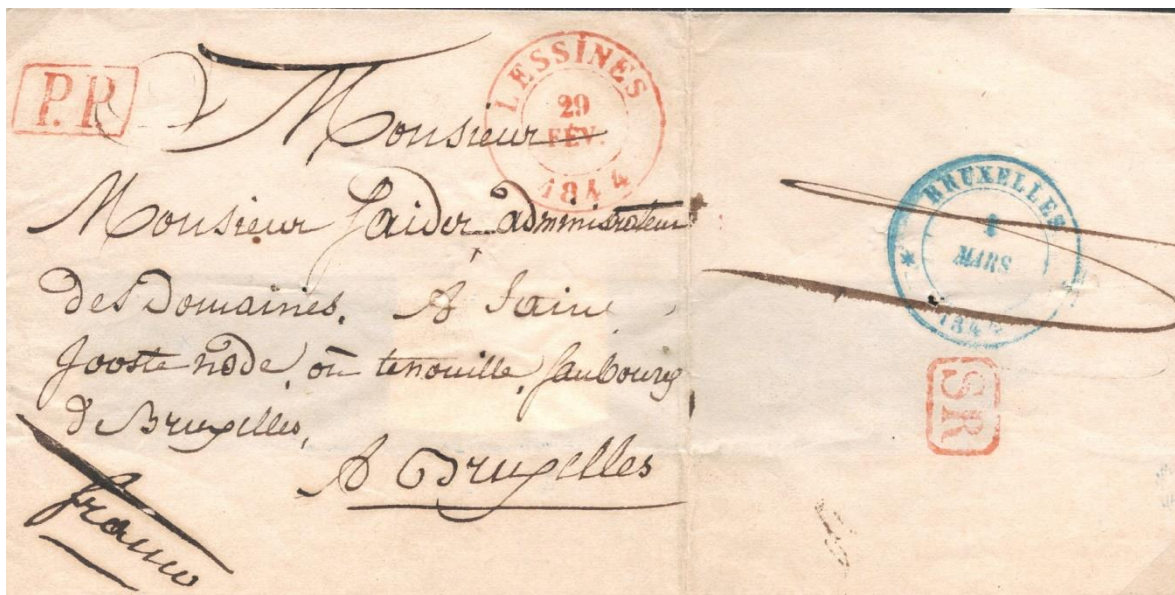 P.P.
LESSINES
29
FÉV.
1844
Monsieur
Monsieur Faider administrateur
des Domaines, A Sain
Jooste node, ou tenouille, faubourg
de Bruxelles,
A Bruxelles
franco
BRUXELLES
1
MARS
1844
SR